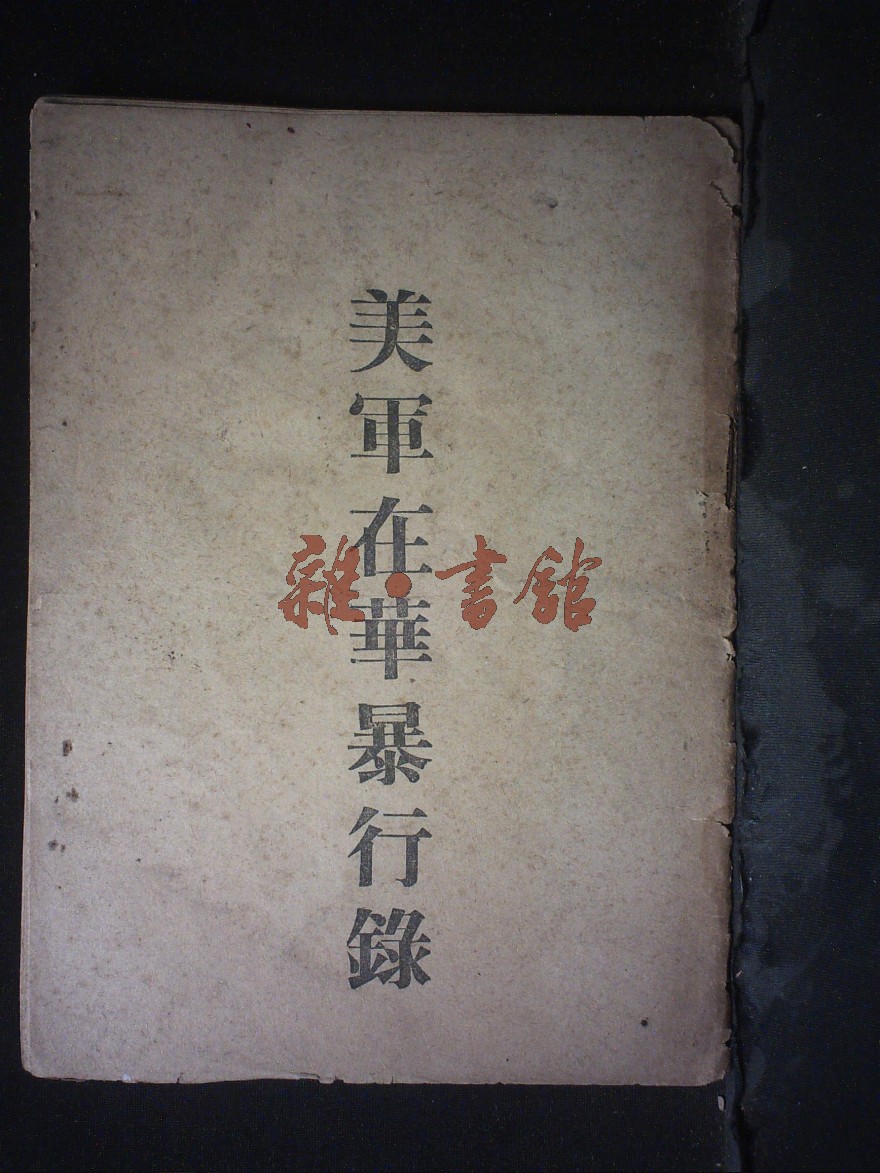 美軍在華暴行錄
雜·書館